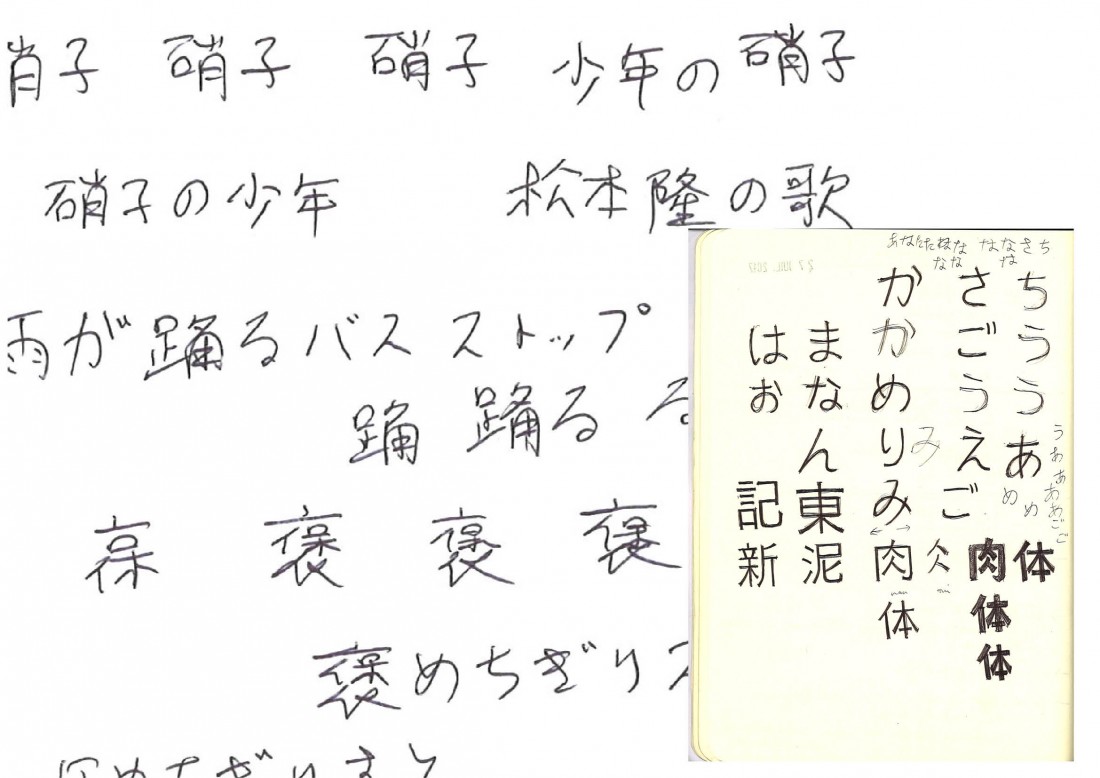 肖子 硝子 硝子 少年の硝子
硝子の少年 松本隆の歌
雨が踊るバス ストップ
踊 踊る る
褒 褒 褒
褒めちぎり
あなたたねな はなさち
なな は
ちううあ
さごうえご
かかめりみ
まなん東泥
はお
記新
み
肉体
肉体体
体
うああああごご
めめ
27 JUL. 2017